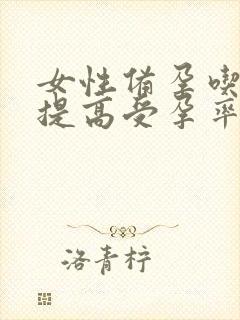 女性备孕喫
提高受孕率
洛青柠